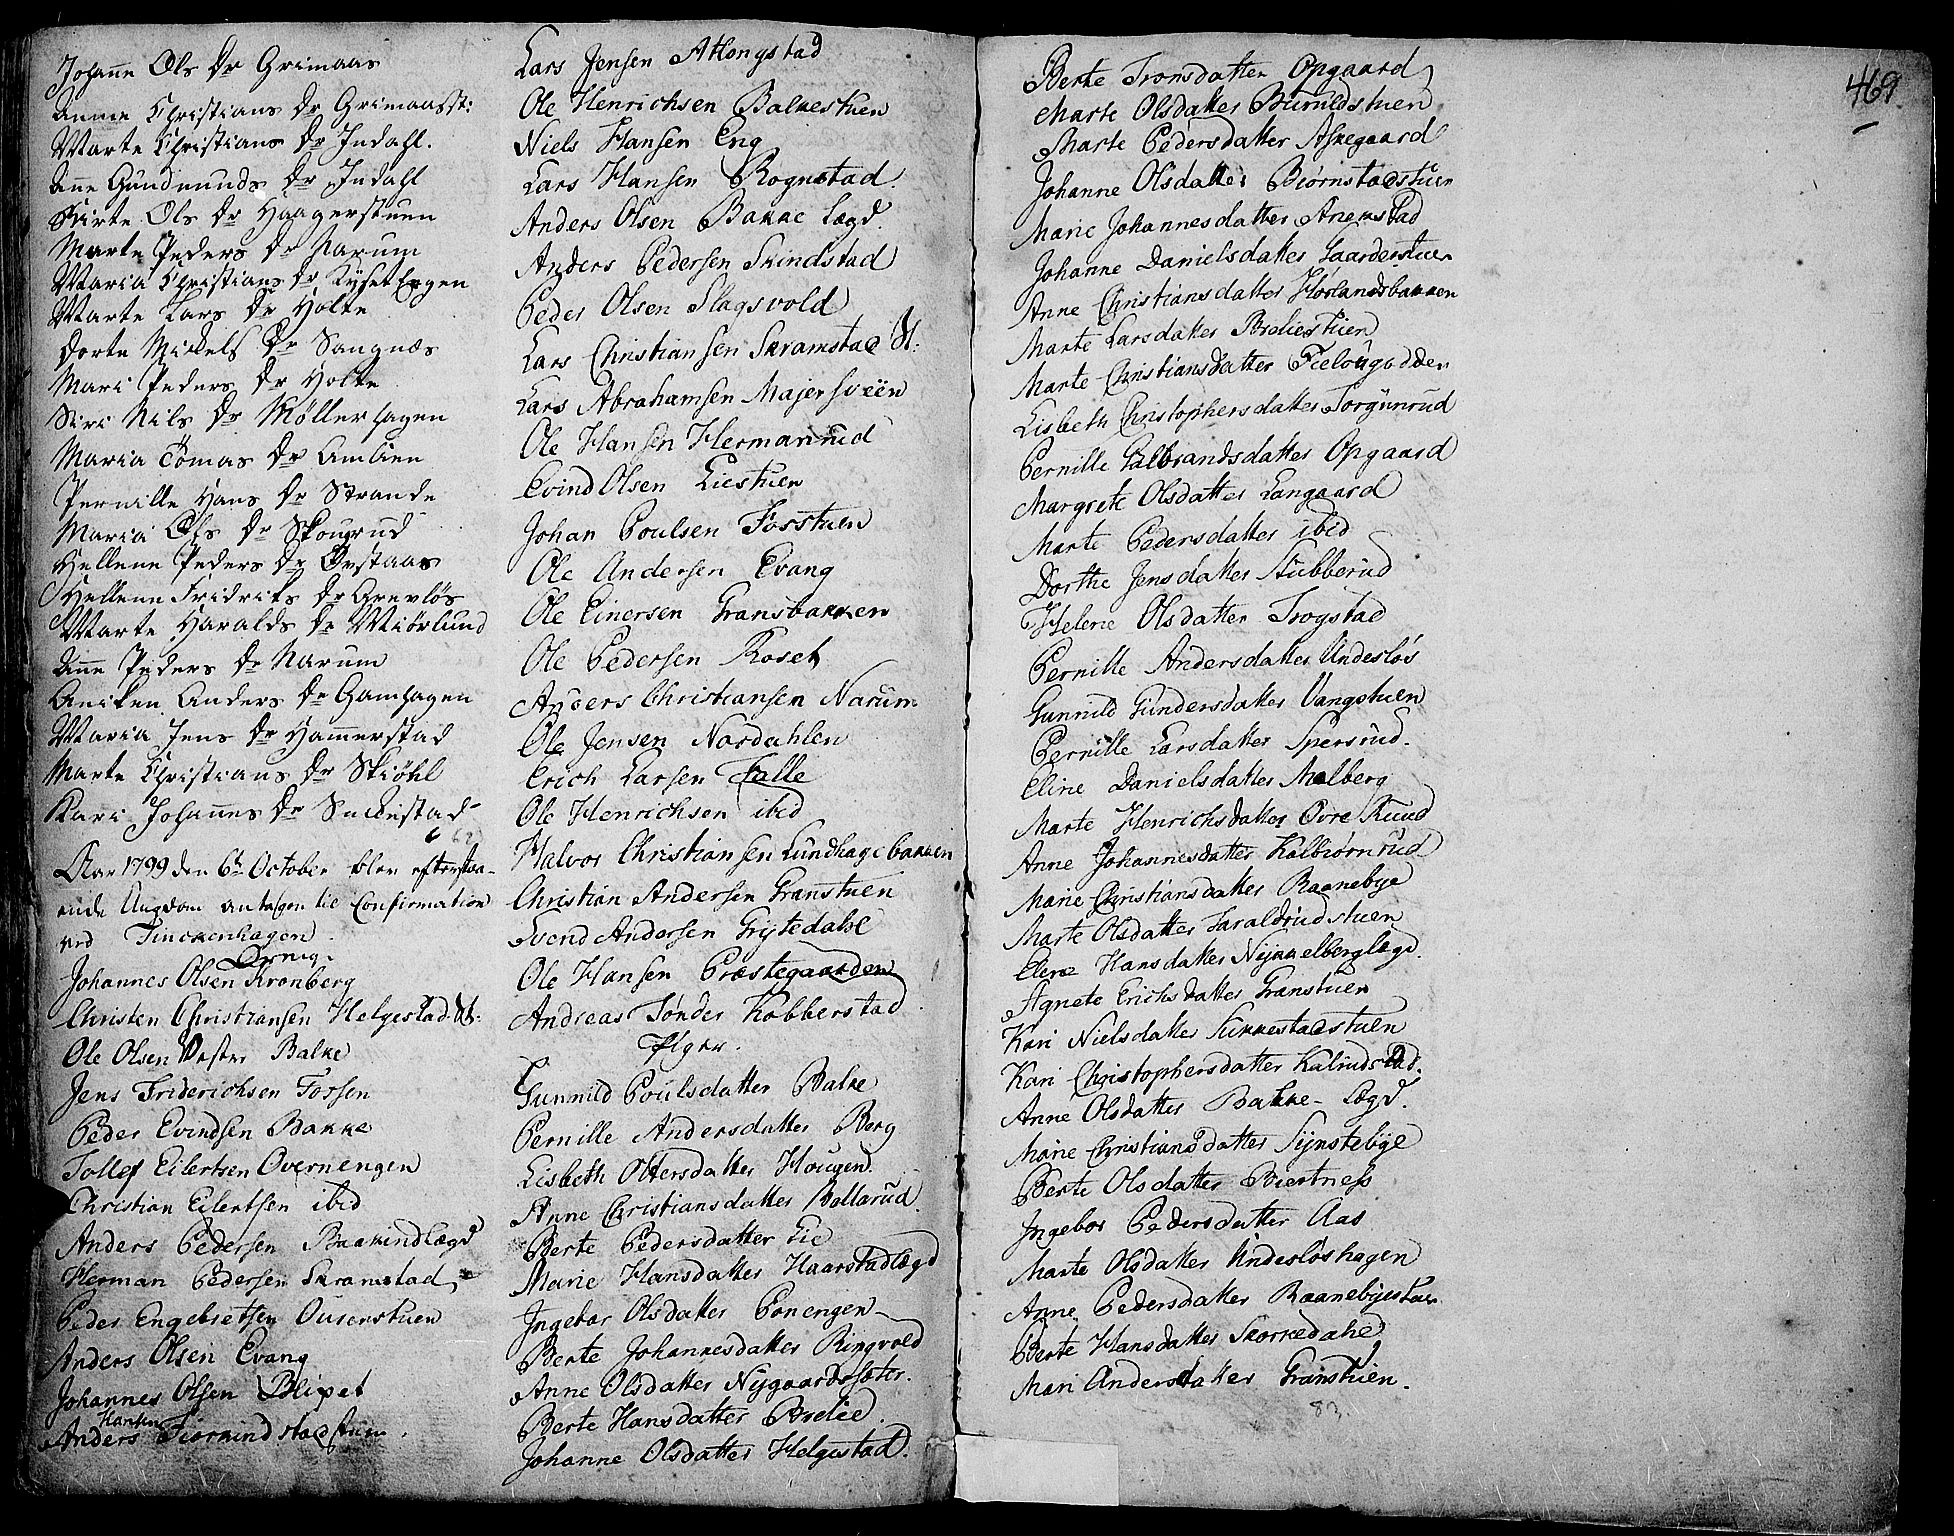 Johañe Ols Dr Grimaas
Anne Christians Dr Grimaasst:
Marte Christians Dr Indahl.
Añe Gundmunds Dr Indahl
Birte Ols Dr Haagerstuen
Marte Peders Dr Narum
Maria Christians Dr Kyset Engen
Marte Lars Dr Holte
Dorte Mickels Dr Sangnæs
Mari Peders Dr Holte
Siri Nils Dr Møllerhagen
Maria Tomas Dr
Pernille Hans Dr Strande
Maria Ols Dr Skougrud
Hellene Peders Dr Ovstaas
Hellene Fridriks Dr Grevløs
Marte Haralds Dr Miørlund
Añe Peders Dr Narum
Aniken Anders Dr Gamhagen
Maria Jens Dr Hamerstad
Marte Christians Dr Skiøhl
Kari Johañes Dr Sukkestad
6 62
Aar 1799 den 6te October blev efterstaa-
ende Ungdom antagen til Confirmation
ved Finckenhagen.
Dreng.
Johannes Olsen Kronberg
Christen Christiansen Helgestad St:
Ole Olsen Vester Balke
Jens Friderichsen Fossen
Peder Evindsen Bakke
Tollef Eilertsen Overnengen
Christian Eilertsen ibid
Anders Pedersen Baakindlægd
Herman Pedersen Skramstad
Peder Engebretsen Ourenstuen
Anders Olsen Evang
Johannes Olsen Blixet
Hansen
Anders Fiorkindstadstuen.
Lars Jensen Alongstad
Ole Henrichsen Balkestuen
Niels Hansen Eng
Lars Hansen Rognstad.
Anders Olsen Bakke Lægd.
Anders Pedersen Skindstad
Peder Olsen Slagsvold
Lars Christiansen Skramstad St:
Lars Abrahamsen Majer Sveen
Ole Hansen Hermanrud
Evind Olsen Liestuen
Johan Poulsen Fosstuen
Ole Andersen Evang
Ole Einersen Gransbakken
Ole Pedersen Roset
Anders Christiansen Narum
Ole Jensen Nordahlen
Erich Larsen Falle
Ole Henrichsen ibid
Halvor Christiansen Lundhagebakken
Christian Andersen Granstuen
Svend Andersen Grytedahl
Ole Hansen Præstegaarden
Andreas Tønder Kobberstad
Piger.
Gunnild Poulsdatter Balke
Pernille Andersdatter Berg
Lisbeth Ottersdatter Hougen.
Anne Christiansdatter Bollerud.
Berte Pedersdatter Lie
Marie Hansdatter Haarstadlægd
Ingebor Olsdatter Ponengen
Berte Johannesdatter Ringvold
Anne Olsdatter Nygaardssæter.
Berte Hansdatter Brelie.
Johanne Olsdatter Helgestad.
469
Berte Tronsdatter Opgaard
Marte Olsdatter Buruldstuen
Marte Pedersdatter Askegaard
Johanne Olsdatter Biørnstadstuen
Marie Johannesdatter Anekstad
Johanne Danielsdatter Gaarderstuen
Anne Christiansdatter Høvlandsbakken
Marte Larsdatter Breliestuen
Marte Christiansdatter Fielougodden
Lisbeth Christophersdatter Torgunrud
Pernille Gulbrandsdatter Opgaard
Margrete Olsdatter Langaard
Marte Pedersdatter ibid
Dorthe Jensdatter Stubberud
Helene Olsdatter Trogstad
Pernille Andersdatter Undesløs
Gunnild Gundersdatter Vangstuen
Pernille Larsdatter Spersrud.
Eline Danielsdatter Malberg
Marte Henrichsdatter Øvre Ruud
Anne Johannesdatter Kalbiørnrud
Marie Christiansdatter Raanebye
Marte Olsdatter Taraldrudstuen
Elene Hansdatter Nyckelberglægd.
Agnete Erichsdatter Granstuen
Kari Nielsdatter Sukkestadstuen
Kari Christophersdatter Kalrudstad.
Anne Olsdatter Bakke- Lægd.
Marie Christiansdatter Synstebye
Berte Olsdatter Biertness
Ingebor Pedersdatter Aas
Marte Olsdatter Undesløshagen
Anne Pedersdatter Raanebyestuen
Berte Hansdatter Skorkedahl
Mari Andersdatter Granstuen.
83